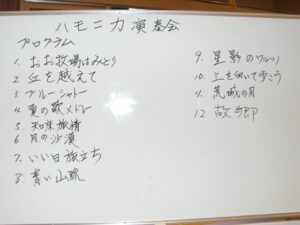 ハモニカ演奏会
プログラム
1. おお牧場はみどり
2. 丘を越えて
3. ブルーシャトー
4. 夏の歌メドレー
5. 知床旅情
6. 月の沙漠
7. いい日旅立ち
8. 青い山脈
9. 星影のワルツ
10. 上を向いて歩こう
11. 荒城の月
12. 故郷